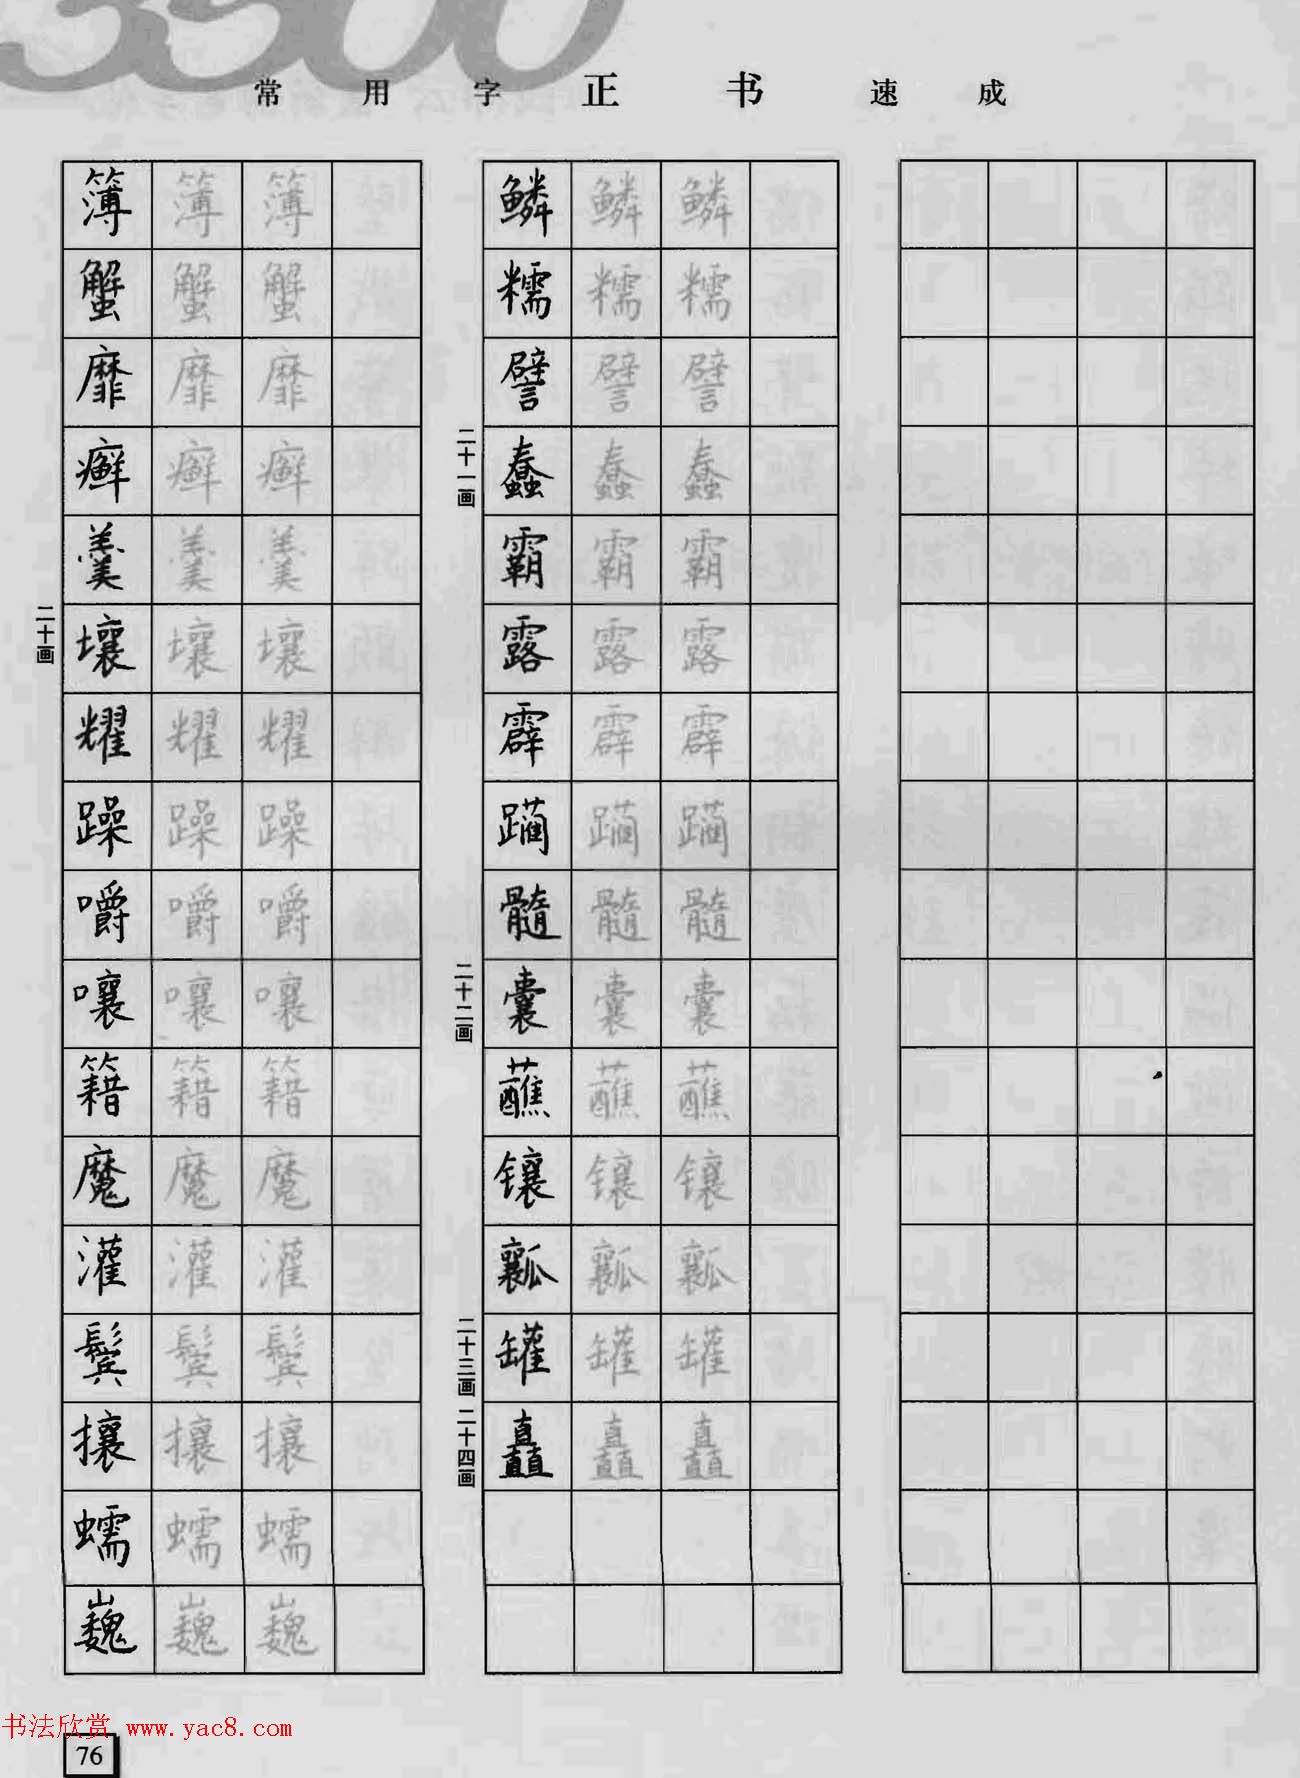 3500
常用字正书速成
簿 簿 簿
蟹 蟹 蟹
靡 靡 靡
癣 癣 癣
羹 羹 羹
二十画
壤 壤 壤
耀 耀 耀
躁 躁 躁
嚼 嚼 嚼
嚷 嚷 嚷
籍 籍 籍
魔 魔 魔
灌 灌 灌
鬓 鬓 鬓
攘 攘 攘
蠕 蠕 蠕
巍 巍 巍
鳞 鳞 鳞
糯 糯 糯
譬 譬 譬
二十一画
蠢 蠢 蠢
霸 霸 霸
露 露 露
霹 霹 霹
躏 躏 躏
髓 髓 髓
二十二画
囊 囊 囊
蘸 蘸 蘸
镶 镶 镶
瓤 瓤 瓤
二十三画
罐 罐 罐
二十四画
矗 矗 矗
书法欣赏 www.yac8.com
76